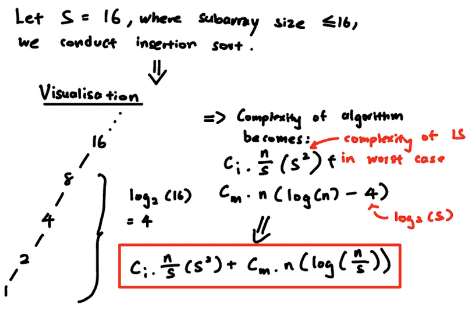 Let S = 16, where subarray size ≤16,
we conduct insertion sort.
⇓
Visualisation
16
8
4
2
1
log₂(16)
= 4
=> Complexity of algorithm
becomes:
complexity of IS
in worst case
Cᵢ. n/s (s²) +
Cₘ. n(log(n) - 4)
log₂(s)
⇓
Cᵢ. n/s (s²) + Cₘ. n(log(n/s))